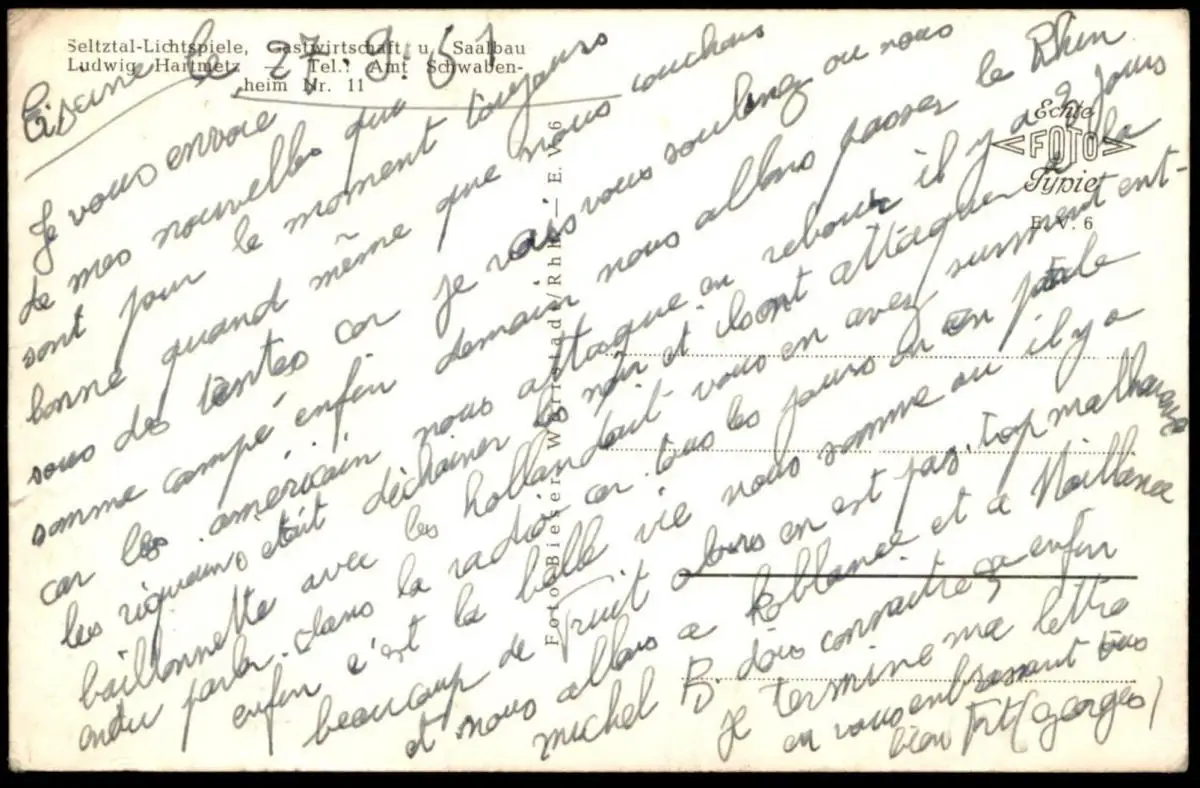 Seltztal-Lichtspiele, Gastwirtschaft u. Saalbau
Ludwig Hartmetz — Tel.: Amt Schwaben-
heim Nr. 11
le 27. 9. 51
Je vous envoie
de mes nouvelles qui
sont pour le moment toujours
bonne quand même que nous couchons
sous des tentes car je vais vous soulinez ou nous
somme campé enfin demain nous allons passer le Rhin
car les américain nous attaque en rebours il y a 2 jours
les était déchainer le noir et ilsont attaquer à la
baillonnette avec les hollandait vous en avez surment ent-
andu parler. dans la radio car tous les jours on en parle
enfin c'est la belle vie nous somme ou il y a
beaucoup de Fruit alors on est pas trop malheureux
et nous allons a koblance et a Maillance
michel B. dois connaitre ça enfin
je termine ma lettre
en vous embrassant tous
bien Fort (Georges)
Foto Bieser, Wörrstadt/Rhh. — E. V. 6
Echte
FOTO
Typie
E. V. 6